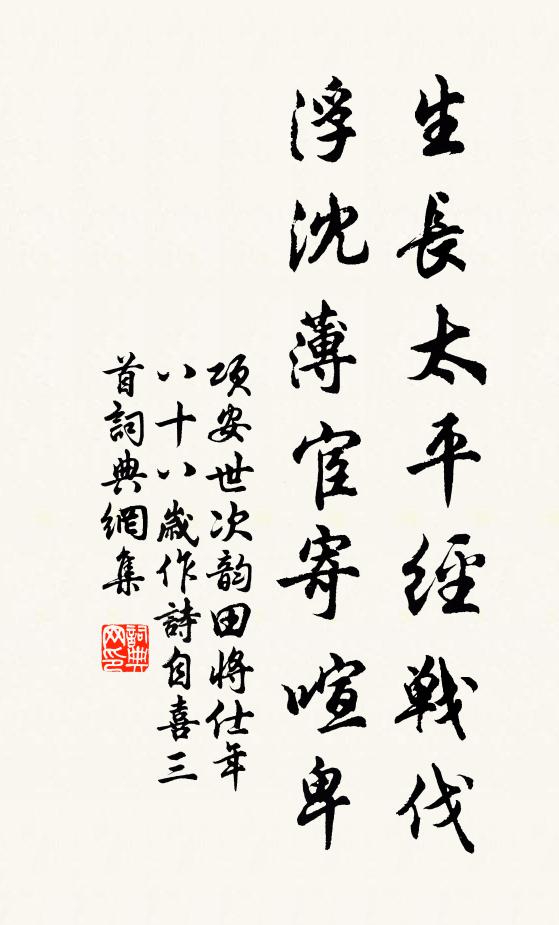 生長太平經戰伐
浮沈薄宦寄喧卑
項安世次韵田將仕年
八十八歲作詩自喜三
首詞典網集
詞典网印